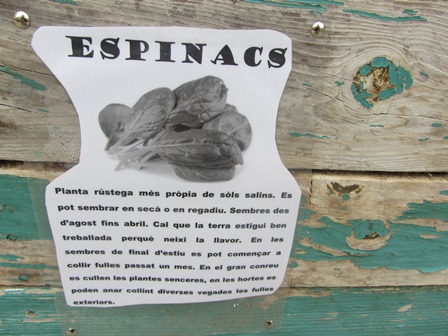 ESPINACS
Planta rústega més pròpia de sòls salins. Es
pot sembrar en secà o en regadiu. Sembres des
d'agost fins abril. Cal que la terra estigui ben
treballada perquè neixi la llavor. En les
sembres de final d'estiu es pot començar a
collir fulles passat un mes. En el gran conreu
es cullen les plantes senceres, en les hortes es
poden anar collint diverses vegades les fulles
exteriors.